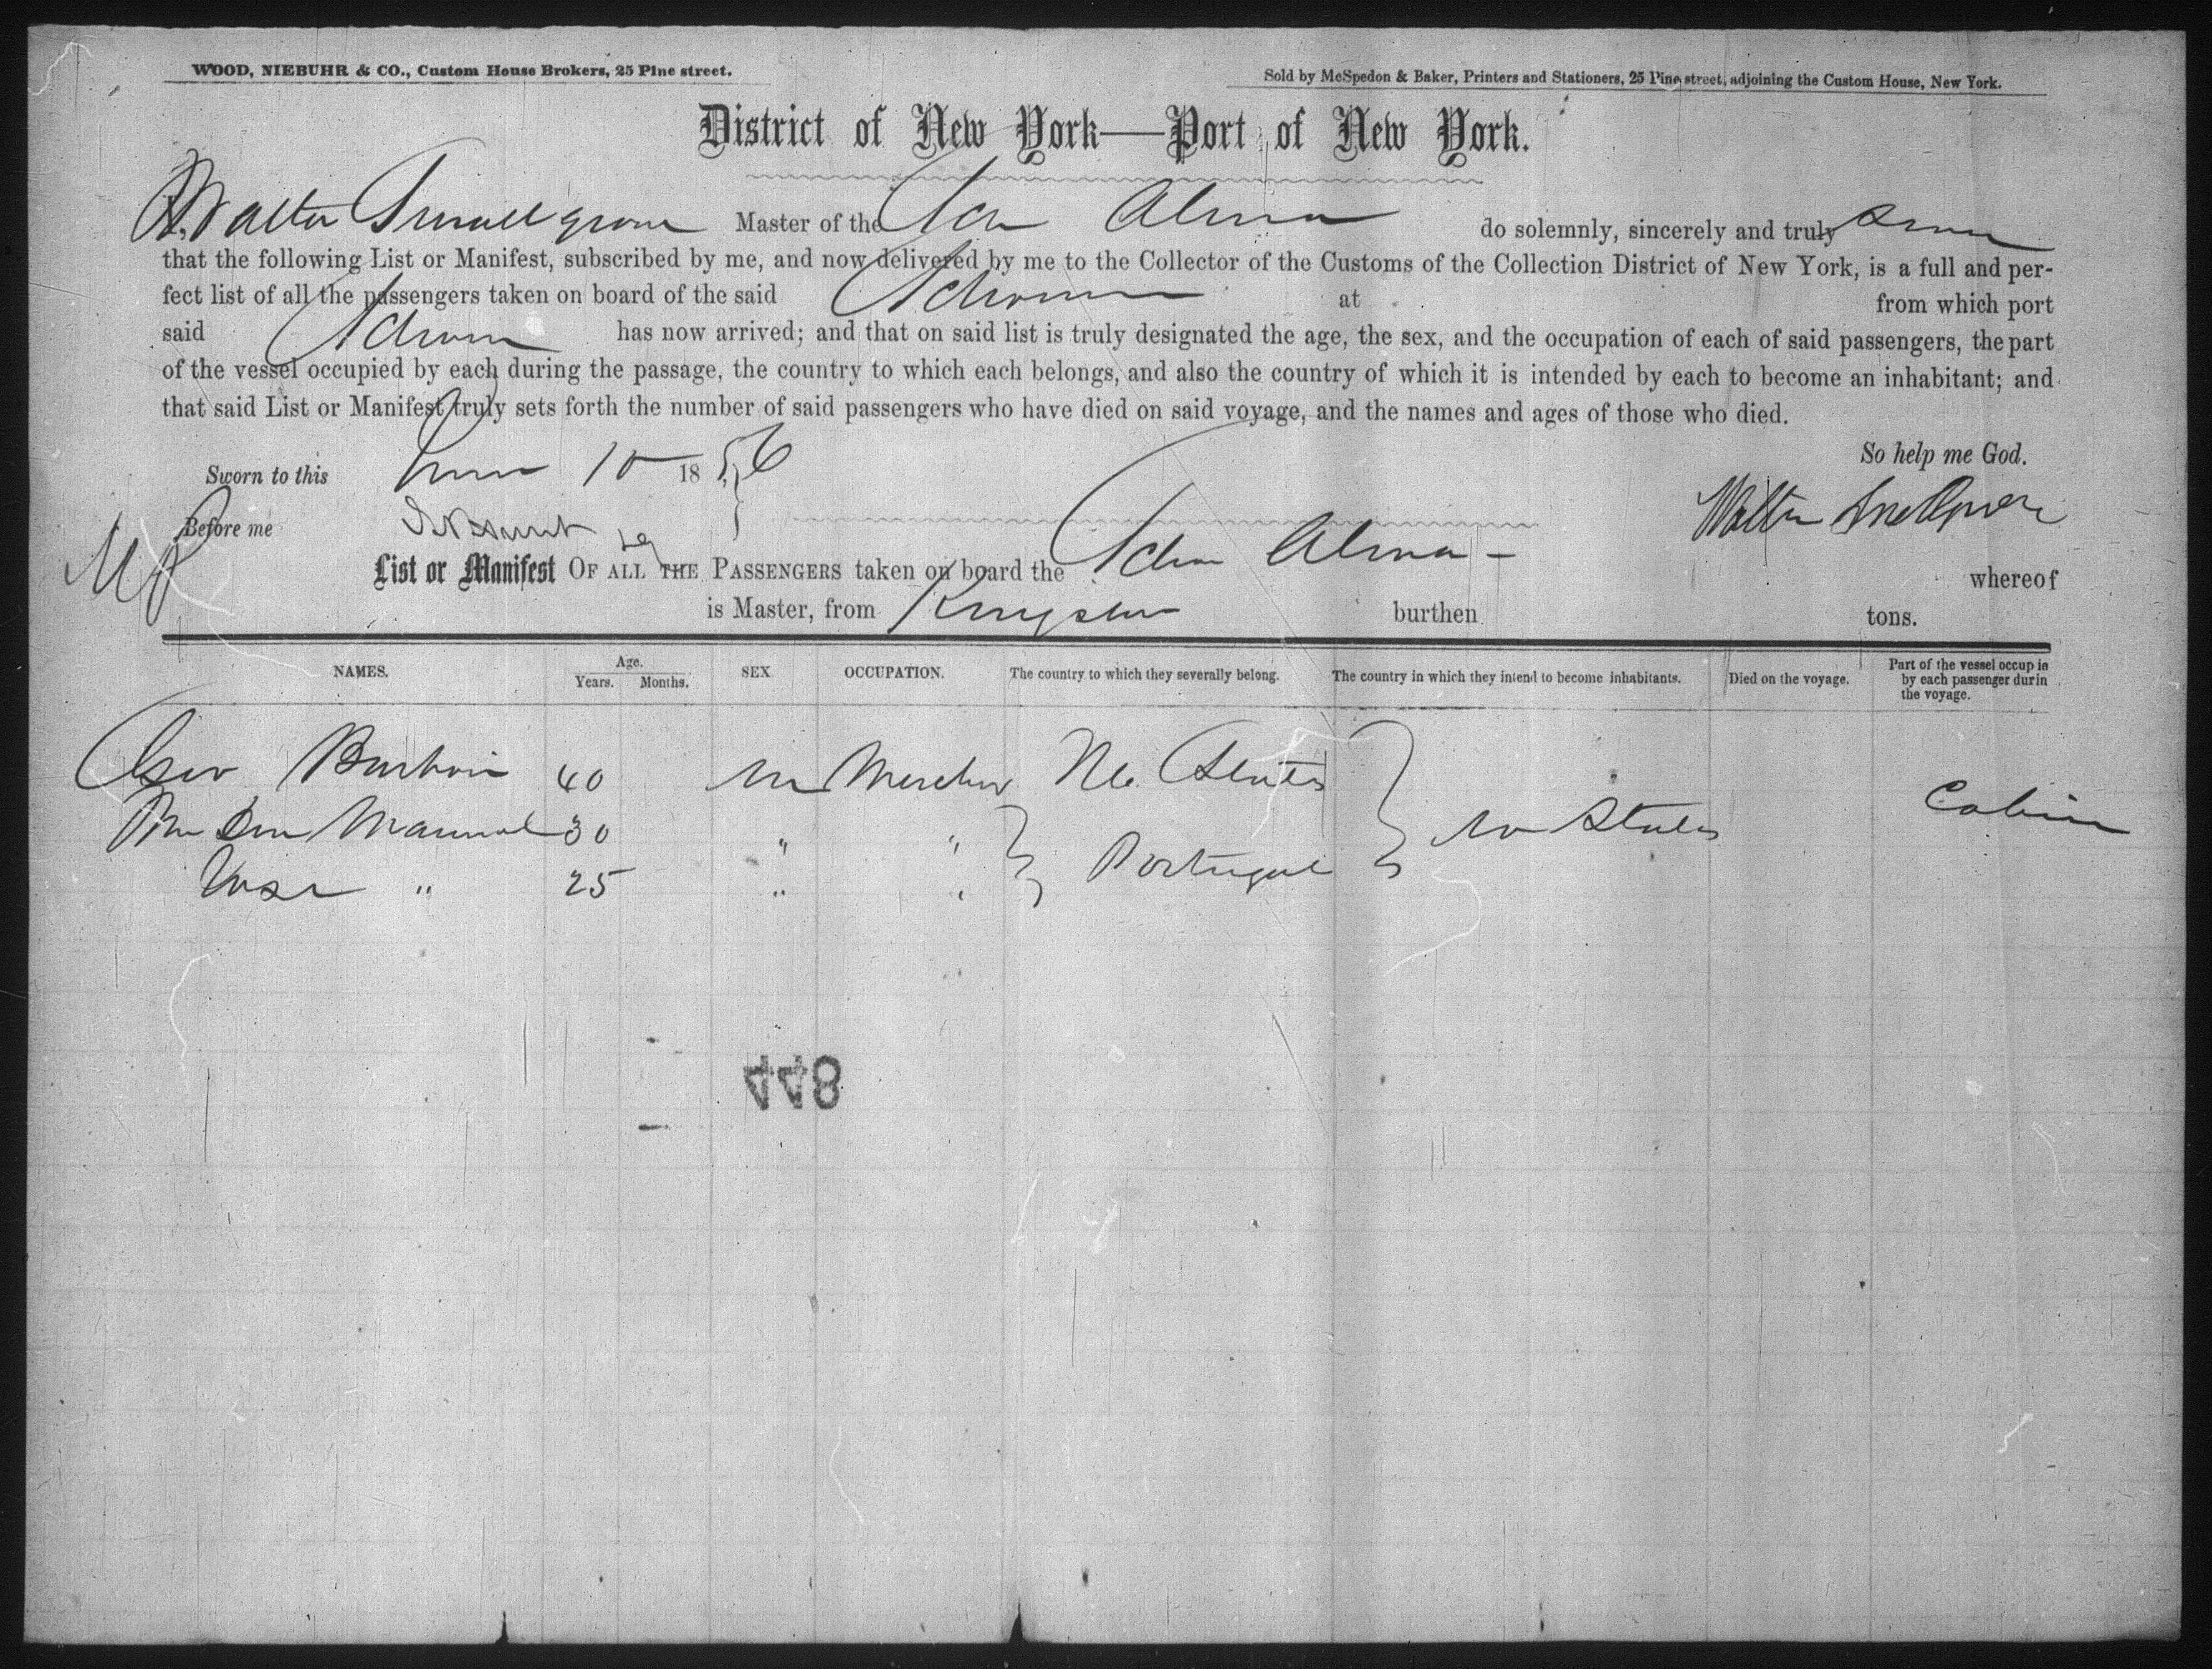 WOOD, NIEBUHR & CO., Custom House Brokers, 25 Pine street.
Sold by McSpedon & Baker, Printers and Stationers, 25 Pine street, adjoining the Custom House, New York.
District of New York—Port of New York.
I, Walter Smallgrove Master of the Schr Alma do solemnly, sincerely and truly swear
that the following List or Manifest, subscribed by me, and now delivered by me to the Collector of the Customs of the Collection District of New York, is a full and per-
fect list of all the passengers taken on board of the said Schooner at from which port
said Schooner has now arrived; and that on said list is truly designated the age, the sex, and the occupation of each of said passengers, the part
of the vessel occupied by each during the passage, the country to which each belongs, and also the country of which it is intended by each to become an inhabitant; and
that said List or Manifest truly sets forth the number of said passengers who have died on said voyage, and the names and ages of those who died.
So help me God.
Sworn to this June 10 1856
Walter
Before me
List or Manifest OF ALL THE PASSENGERS taken on board the Schr Alma - whereof
is Master, from Kingston burthen tons.
NAMES. Age. Years. Months. SEX OCCUPATION. The country to which they severally belong. The country in which they intend to become inhabitants. Died on the voyage. Part of the vessel occup in by each passenger durin the voyage.
Geo 40 m Mercht U States
Manuel 30 " " Portugal U States Cabin
Jose " 25 " "
448